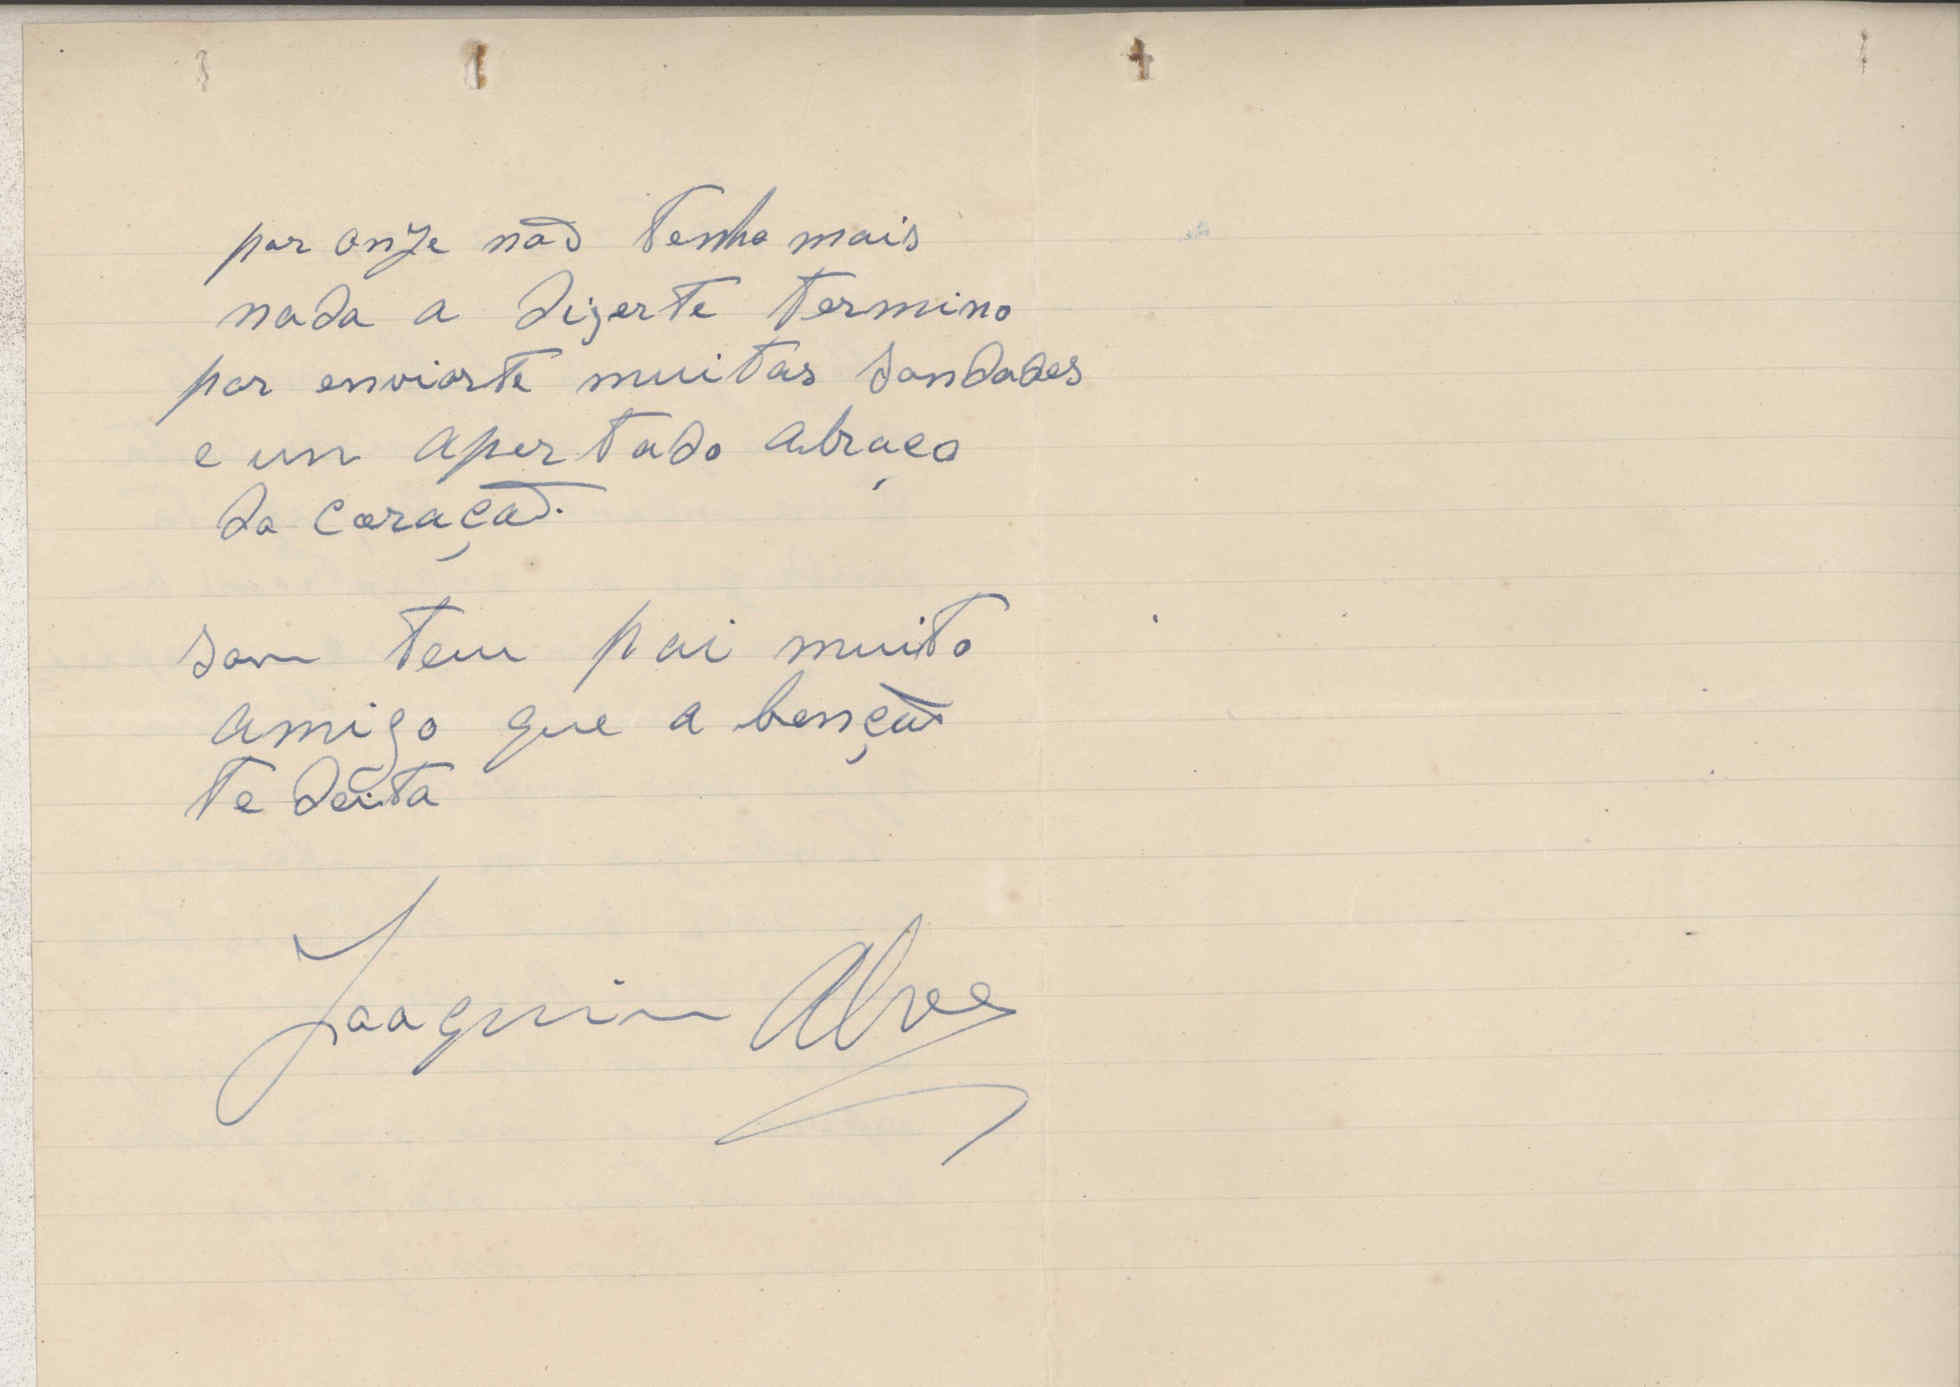 por onze não tenho mais
nada a dizerte termino
por enviarte muitas saudades
e un apertado abraço
do coração.
sou teu pai muito
amigo que a benção
te deita
Joaquim Alves